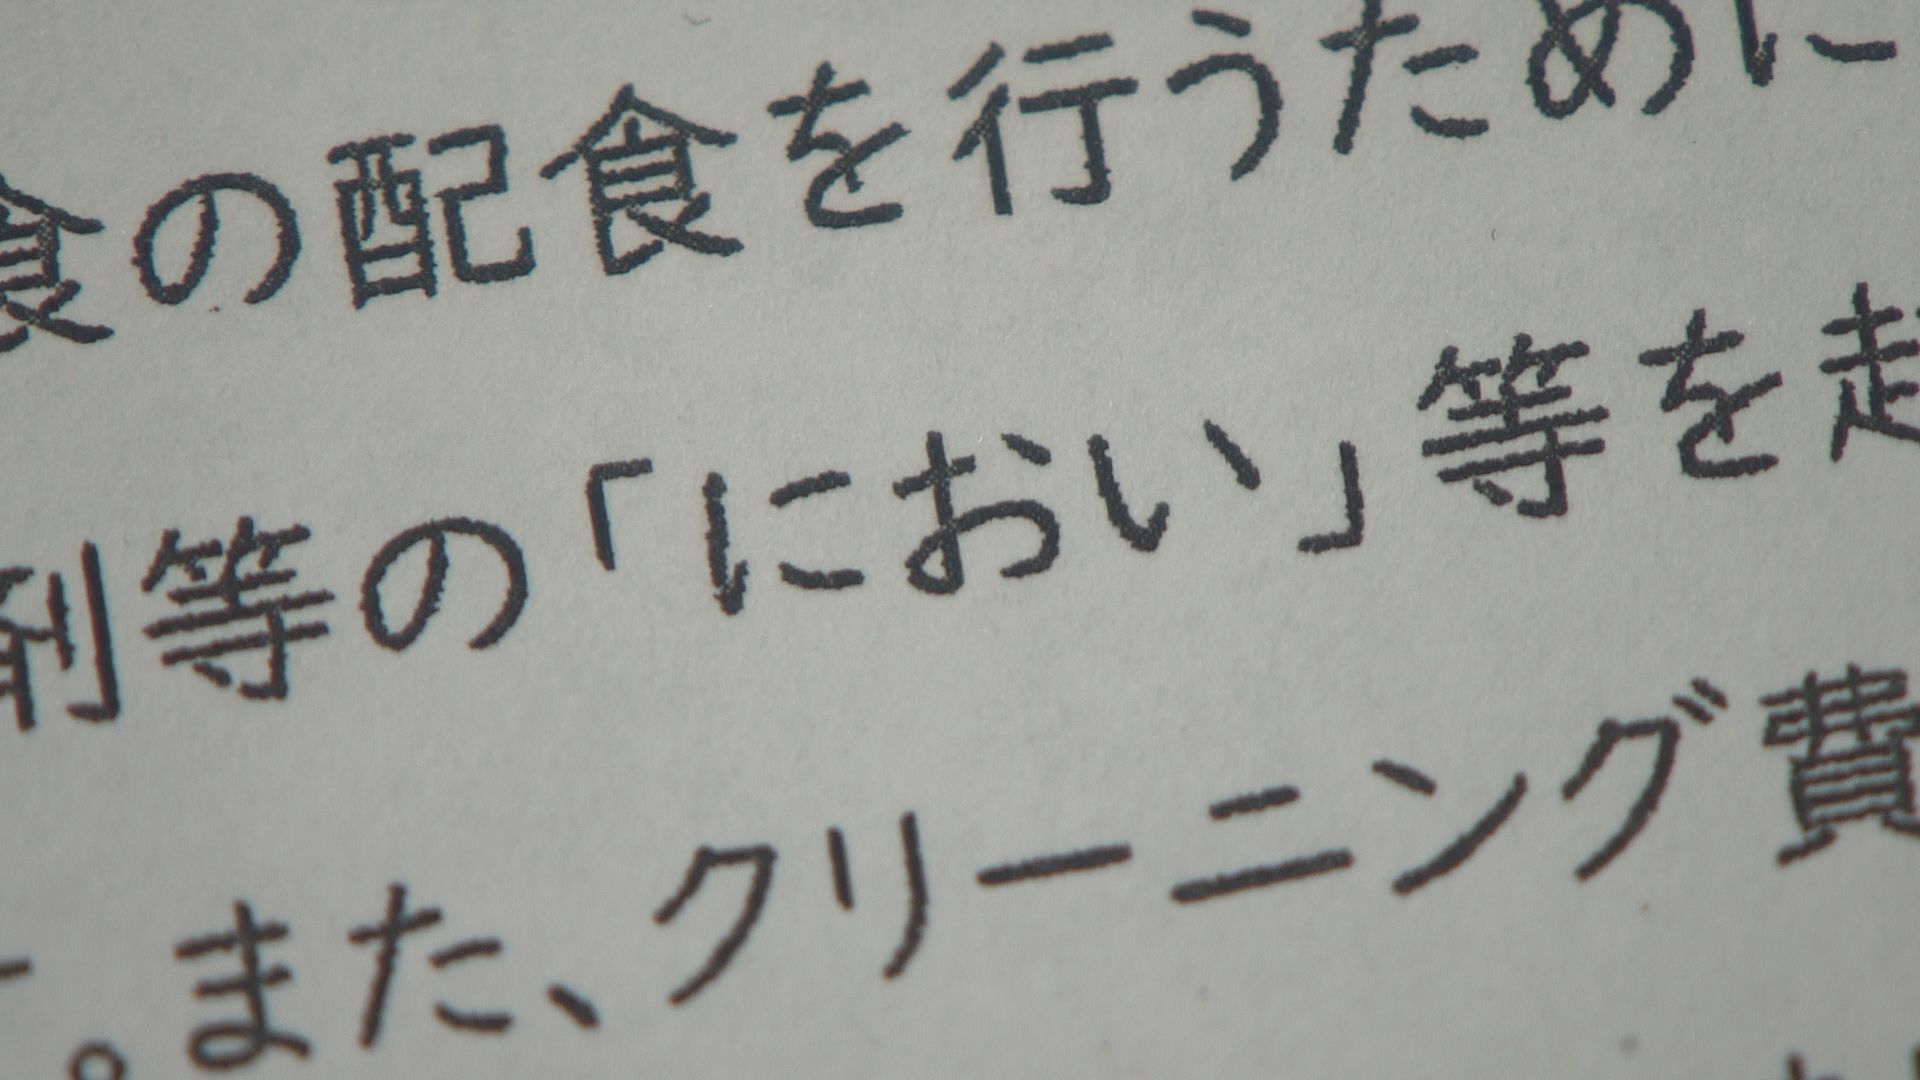 食の配食を行うために
剤等の「におい」等を起
。また、クリーニング費